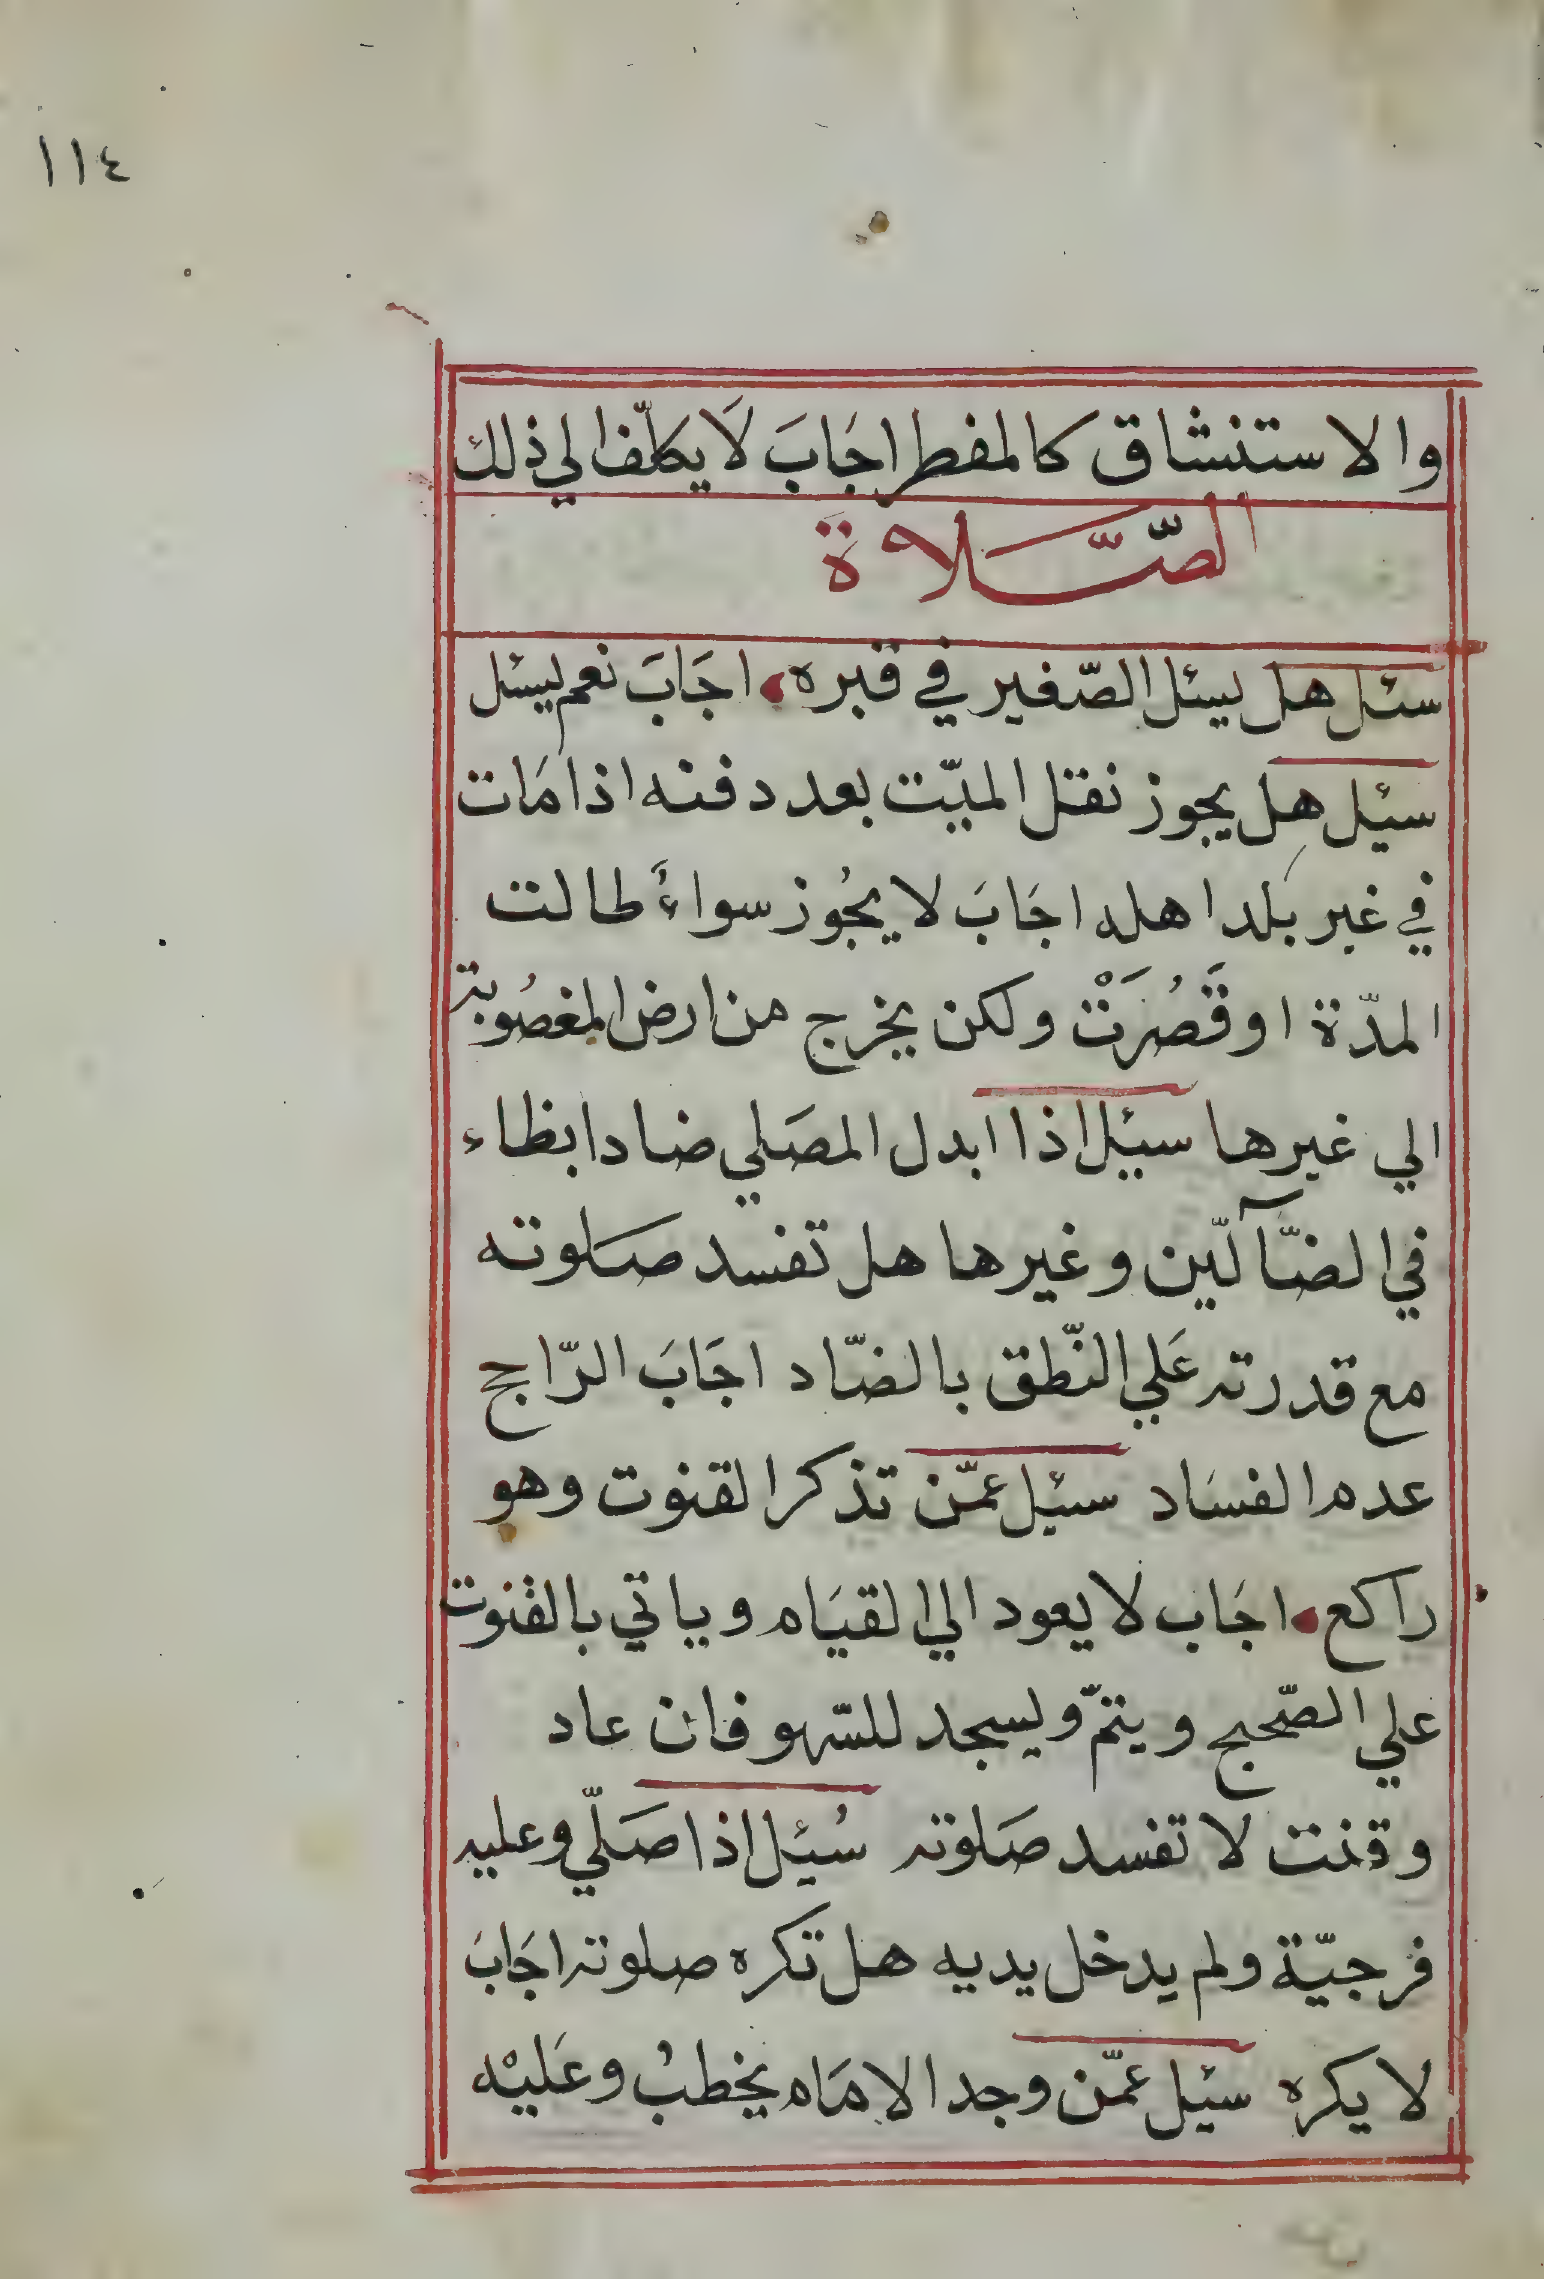 ١١٤
والاستنشاق كالمفطر اجَابَ لَا يكلّف الي ذلك
الصَّلاة
سئل هل يسئل الصّغير في قبره اجَابَ نعم يسئل
سئل هل يجوز نقل الميّت بعد دفنه اذا مَات
في غير بَلد اهله اجَابَ لا يجُوز سواءً طالت
المدّة او قَصُرَتْ ولكن يخرج من ارض المغصُوبة
الي غيرها سئل اذا ابدل المصَلي ضادا بظاء
في الضّآلّين وغيرها هل تفسد صَلوته
مع قدرته عَلي النّطق بالضّاد اجَابَ الرّاجح
عدم الفسَاد سئل عمّن تذكر القنوت وهو
راكع اجَاب لا يعود الي القيَام وياتي بالقنوت
علي الصّحيح ويتمّ ويسجد للسّهو فان عاد
وقنت لا تفسد صَلوته سُئل اذا صَلّي وعليه
فرجيّة ولم يدخل يديه هل تكره صلوته اجَابَ
لا يكره سئل عمّن وجد الامَام يخطبُ وعَليْه